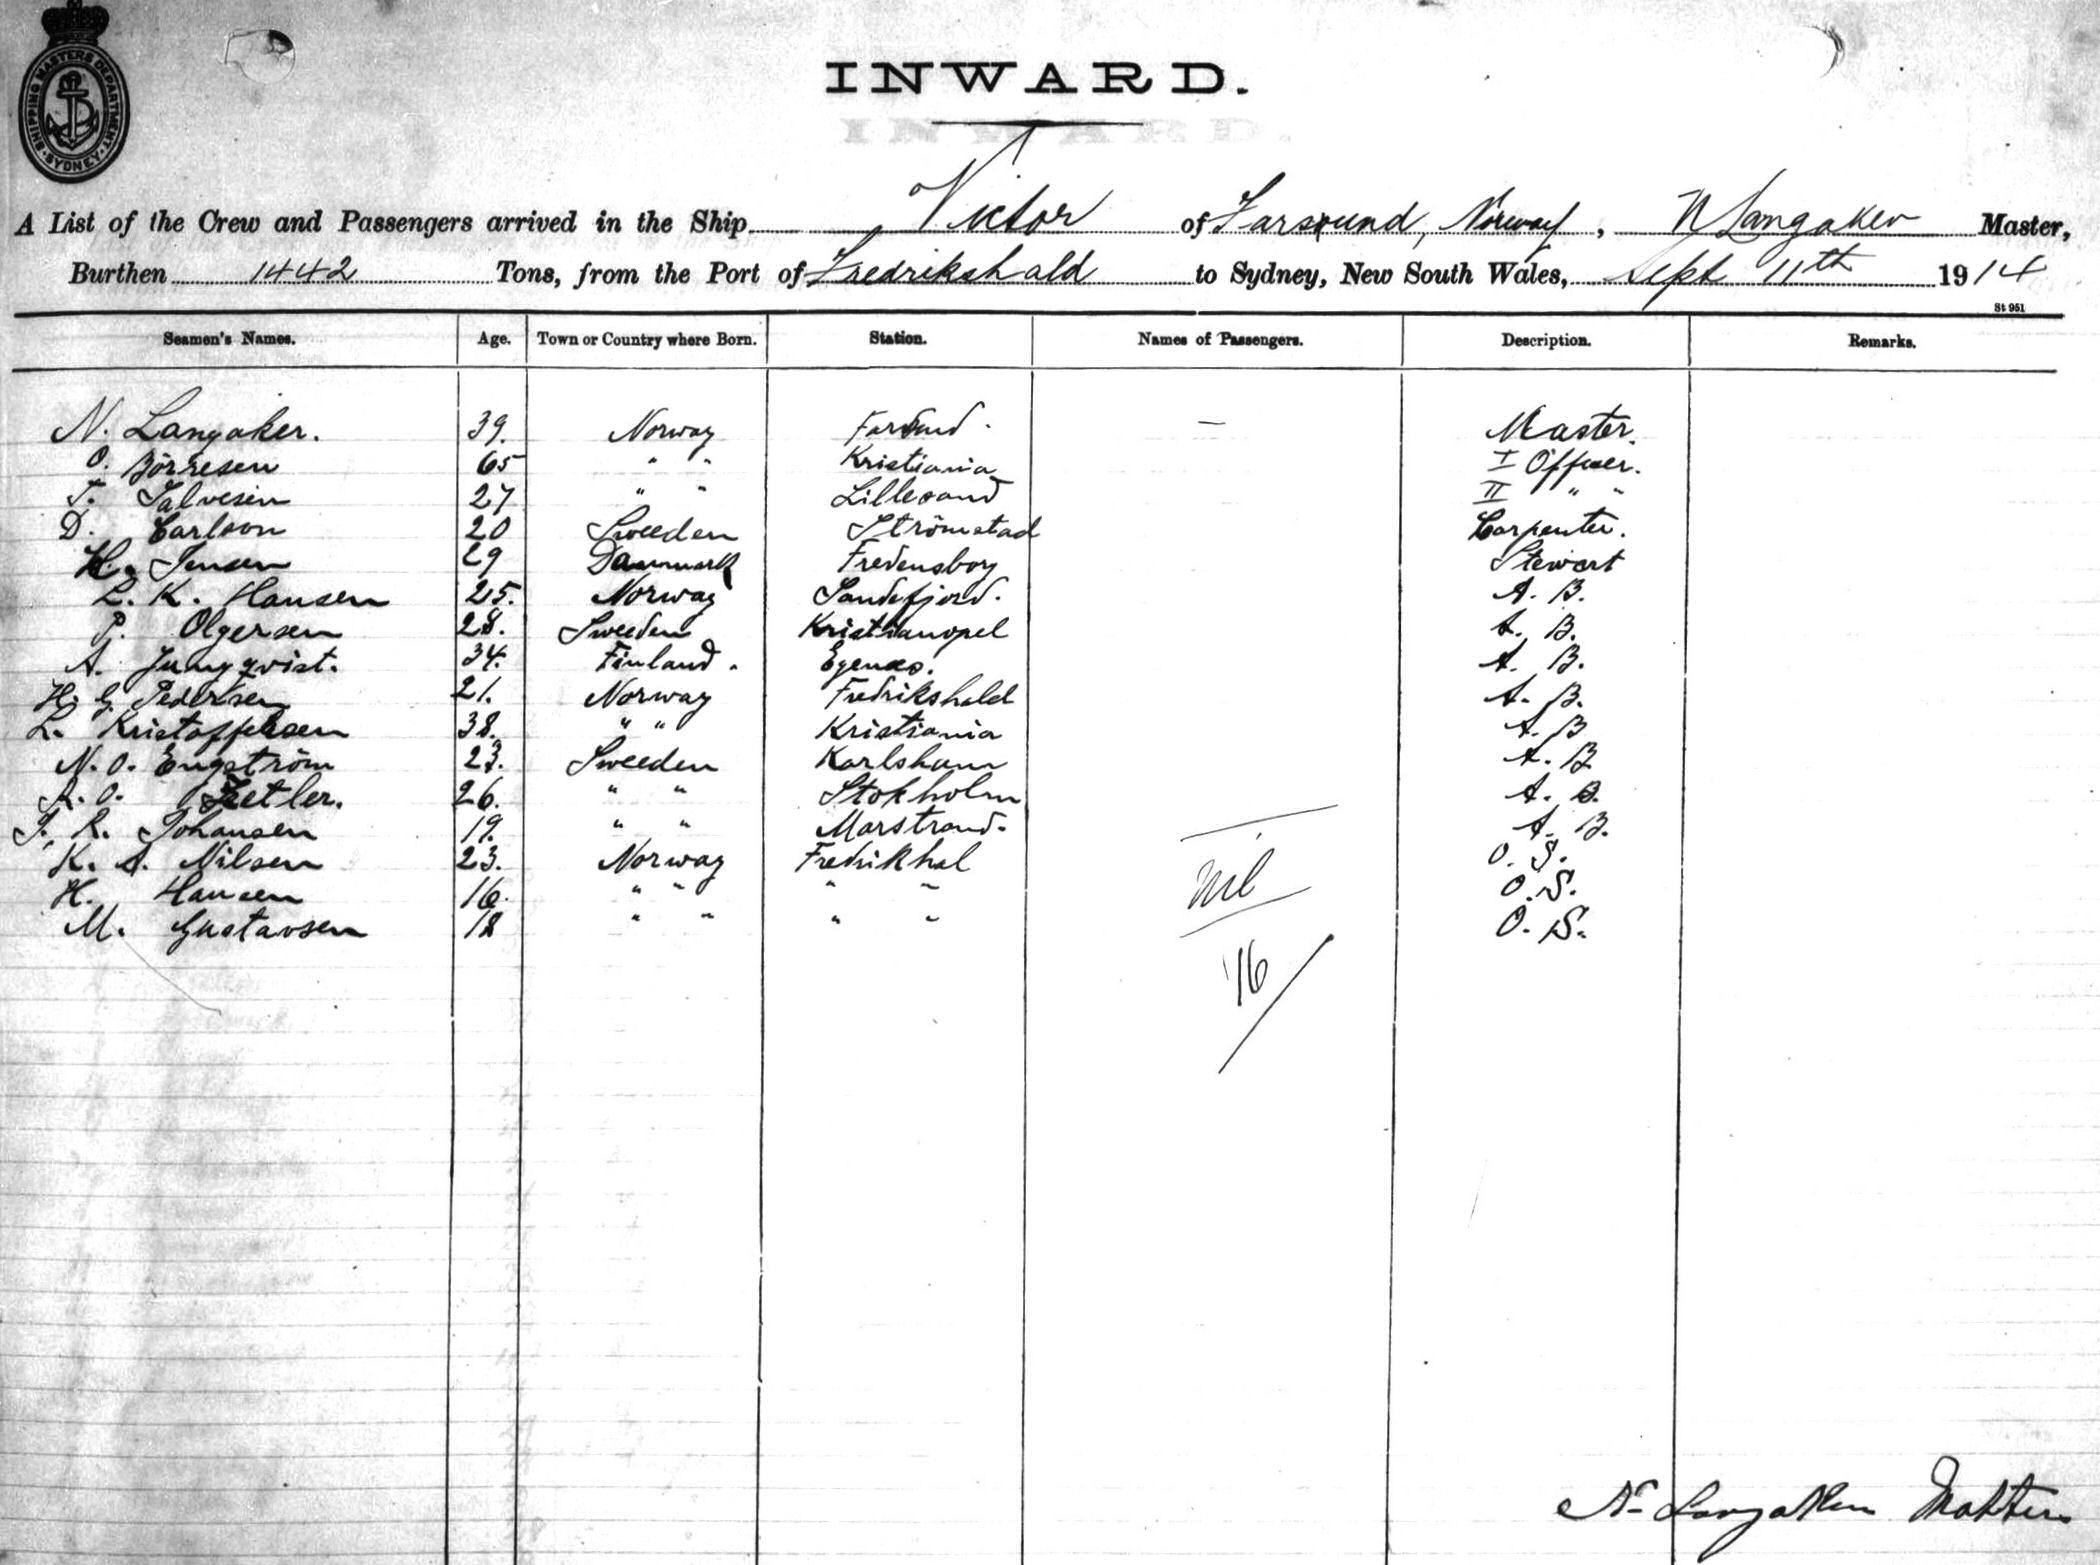 SHIPPING MASTERS DEPARTMENT · SYDNEY ·
INWARD.
A List of the Crew and Passengers arrived in the Ship Victor of Farsund, Norway, N Langaker Master,
Burthen 1442 Tons, from the Port of Fredrikshald to Sydney, New South Wales, Sept 11th 1914
St 951
Seamen's Names. Age. Town or Country where Born. Station. Names of Passengers. Description. Remarks.
N. Langaker. 39. Norway Farsund. — Master.
O. Börresen 65 " " Kristiania I Officer.
T. Salvesen 27 " " Lillesand II " "
D. Carlson 20 Sweeden Strömstad Carpenter.
H. Jensen 29 Danmark Fredensborg Stewart
L. K. Hansen 25. Norway Sandefjord. A. B.
P. Olgersen 28. Sweeden Kristianopel A. B.
A. Jungqvist. 34. Finland. Egenes. A. B.
H. G. Pedersen 21. Norway Fredrikshald A. B.
L. Kristoffersen 38. " " Kristiania A. B
N. O. Engström 23. Sweeden Karlshamn A. B
A. O. Zetler. 26. " " Stokholm A. B.
T. R. Johansen 19. " " Marstrand. A. B.
K. A. Nilsen 23. Norway Fredrikhal O. S.
H. Hansen 16. " " " " Nil O. S.
M. Gustavsen 18 " " " " O. S.
16
N. Langaker Master